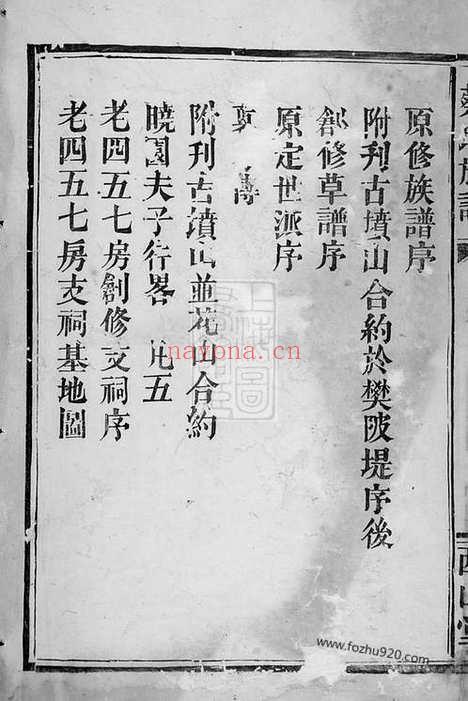 原修族譜序
附刊古墳山合約於樊陂堤序後
創修草譜序
原定世派序
附刊古墳山並花山合約
曉園夫子行畧 皃五
老四五七房創修支祠序
老四五七房支祠基地圖
族譜
nayona.cn
www.fozhu920.com